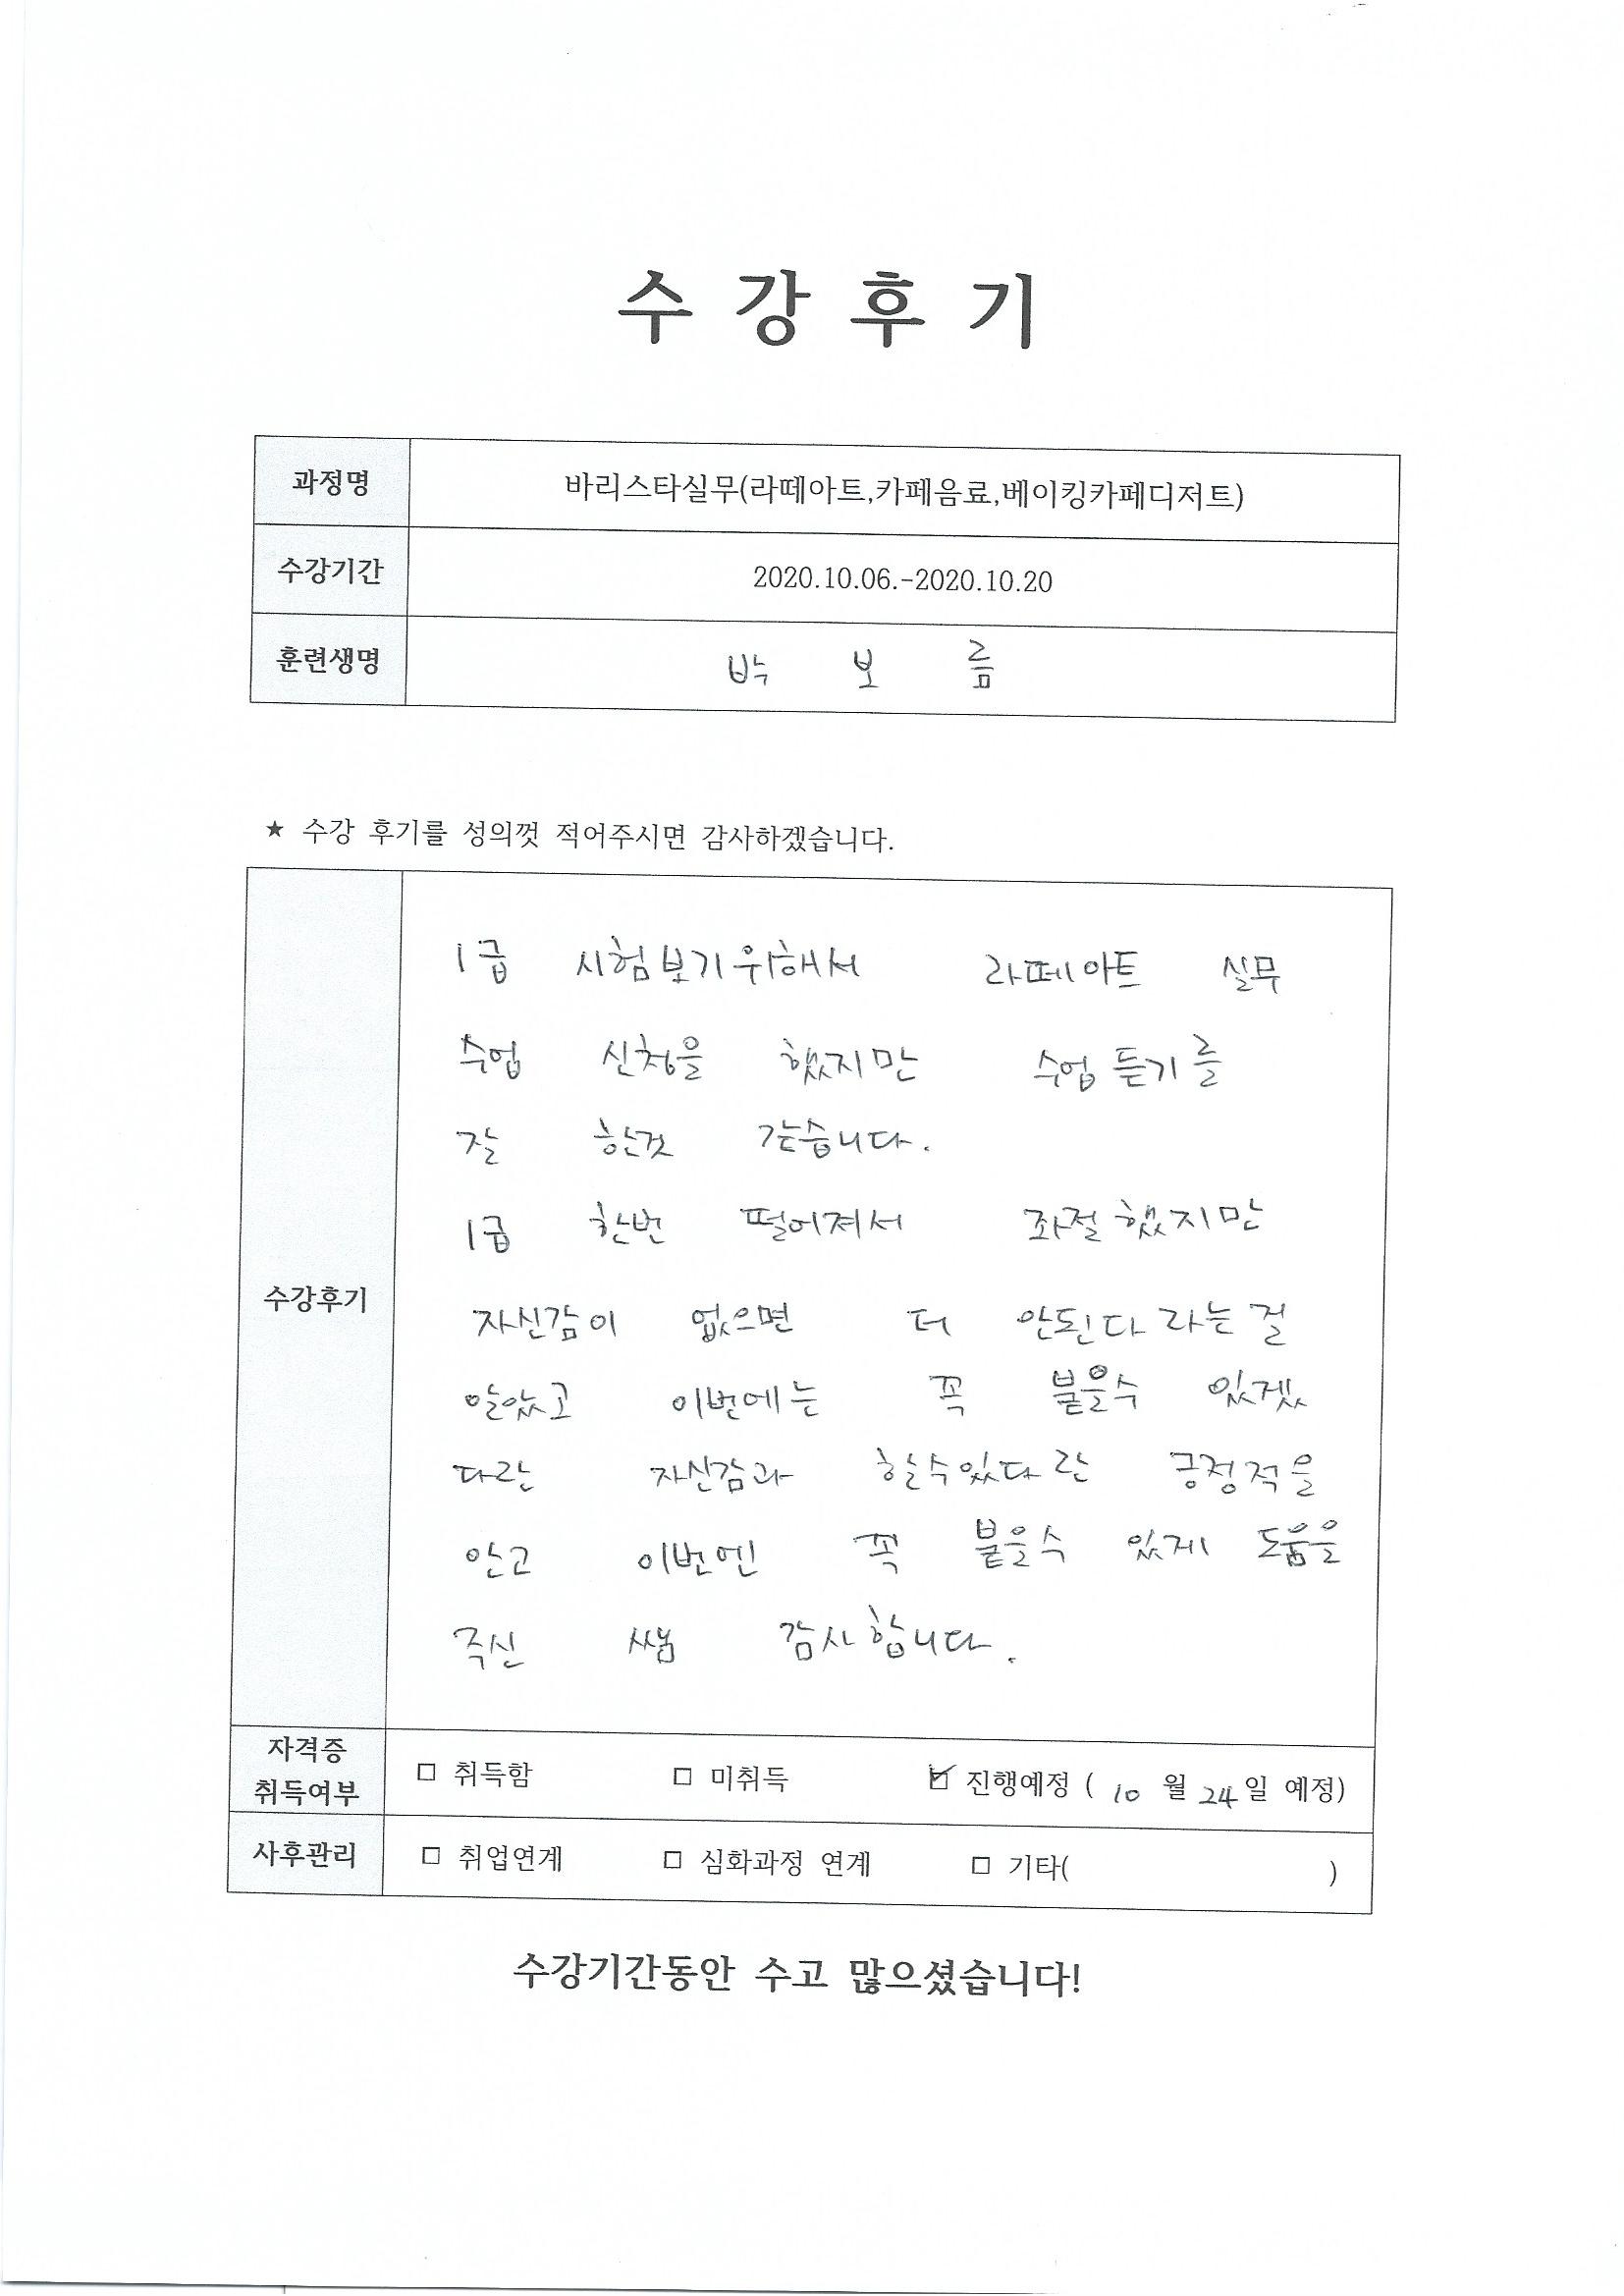 수 강 후 기
과정명 바리스타실무(라떼아트,카페음료,베이킹카페디저트)
수강기간 2020.10.06.-2020.10.20
훈련생명 박 보 름
★ 수강 후기를 성의껏 적어주시면 감사하겠습니다.
1급 시험보기위해서 라떼아트 실무
수업 신청을 했지만 수업 듣기를
잘 한것 같습니다.
1급 한번 떨어져서 좌절했지만
수강후기
자신감이 없으면 더 안된다라는걸
알았고 이번에는 꼭 붙을수 있겠
다란 자신감과 할수있다란 긍정적을
안고 이번엔 꼭 붙을수 있게 도움을
주신 쌤 감사합니다.
자격증
취득여부 □ 취득함 □ 미취득 ☑ 진행예정 ( 10 월 24일 예정)
사후관리 □ 취업연계 □ 심화과정 연계 □ 기타( )
수강기간동안 수고 많으셨습니다!